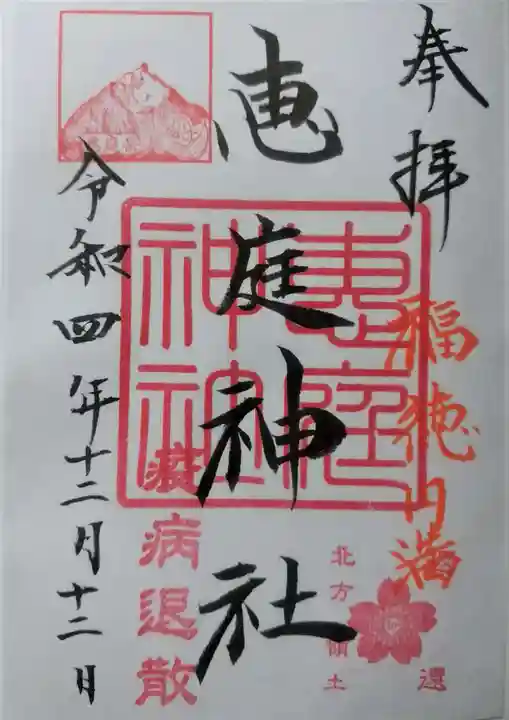 奉拝
福徳円満
北方領土
還
恵庭神社
恵庭神社
疫病退散
令和四年十二月十二日